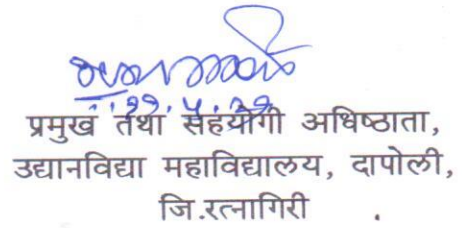 प्रमुख तथा सहयोगी अधिष्ठाता,
उद्यानविद्या महाविद्यालय, दापोली,
जि.रत्नागिरी